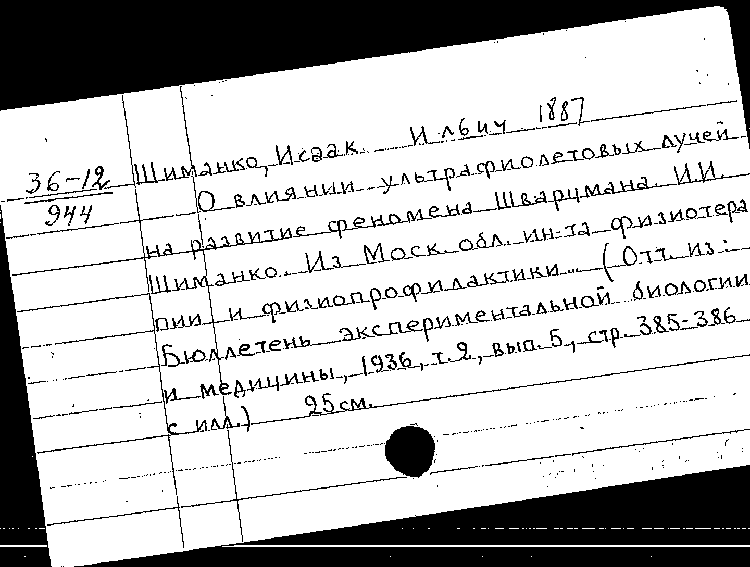 36-12
944
Шиманко, Исаак Ильич 1887
О влиянии ультрафиолетовых лучей
на развитие феномена Шварцмана. И.И.
Шиманко. Из Моск. обл. ин-та физиотера
пии и физиопрофилактики... (Отт. из:
Бюллетень экспериментальной биологии
и медицины, 1936, т. 2, вып. 5, стр. 385-386
с илл.) 25 см.